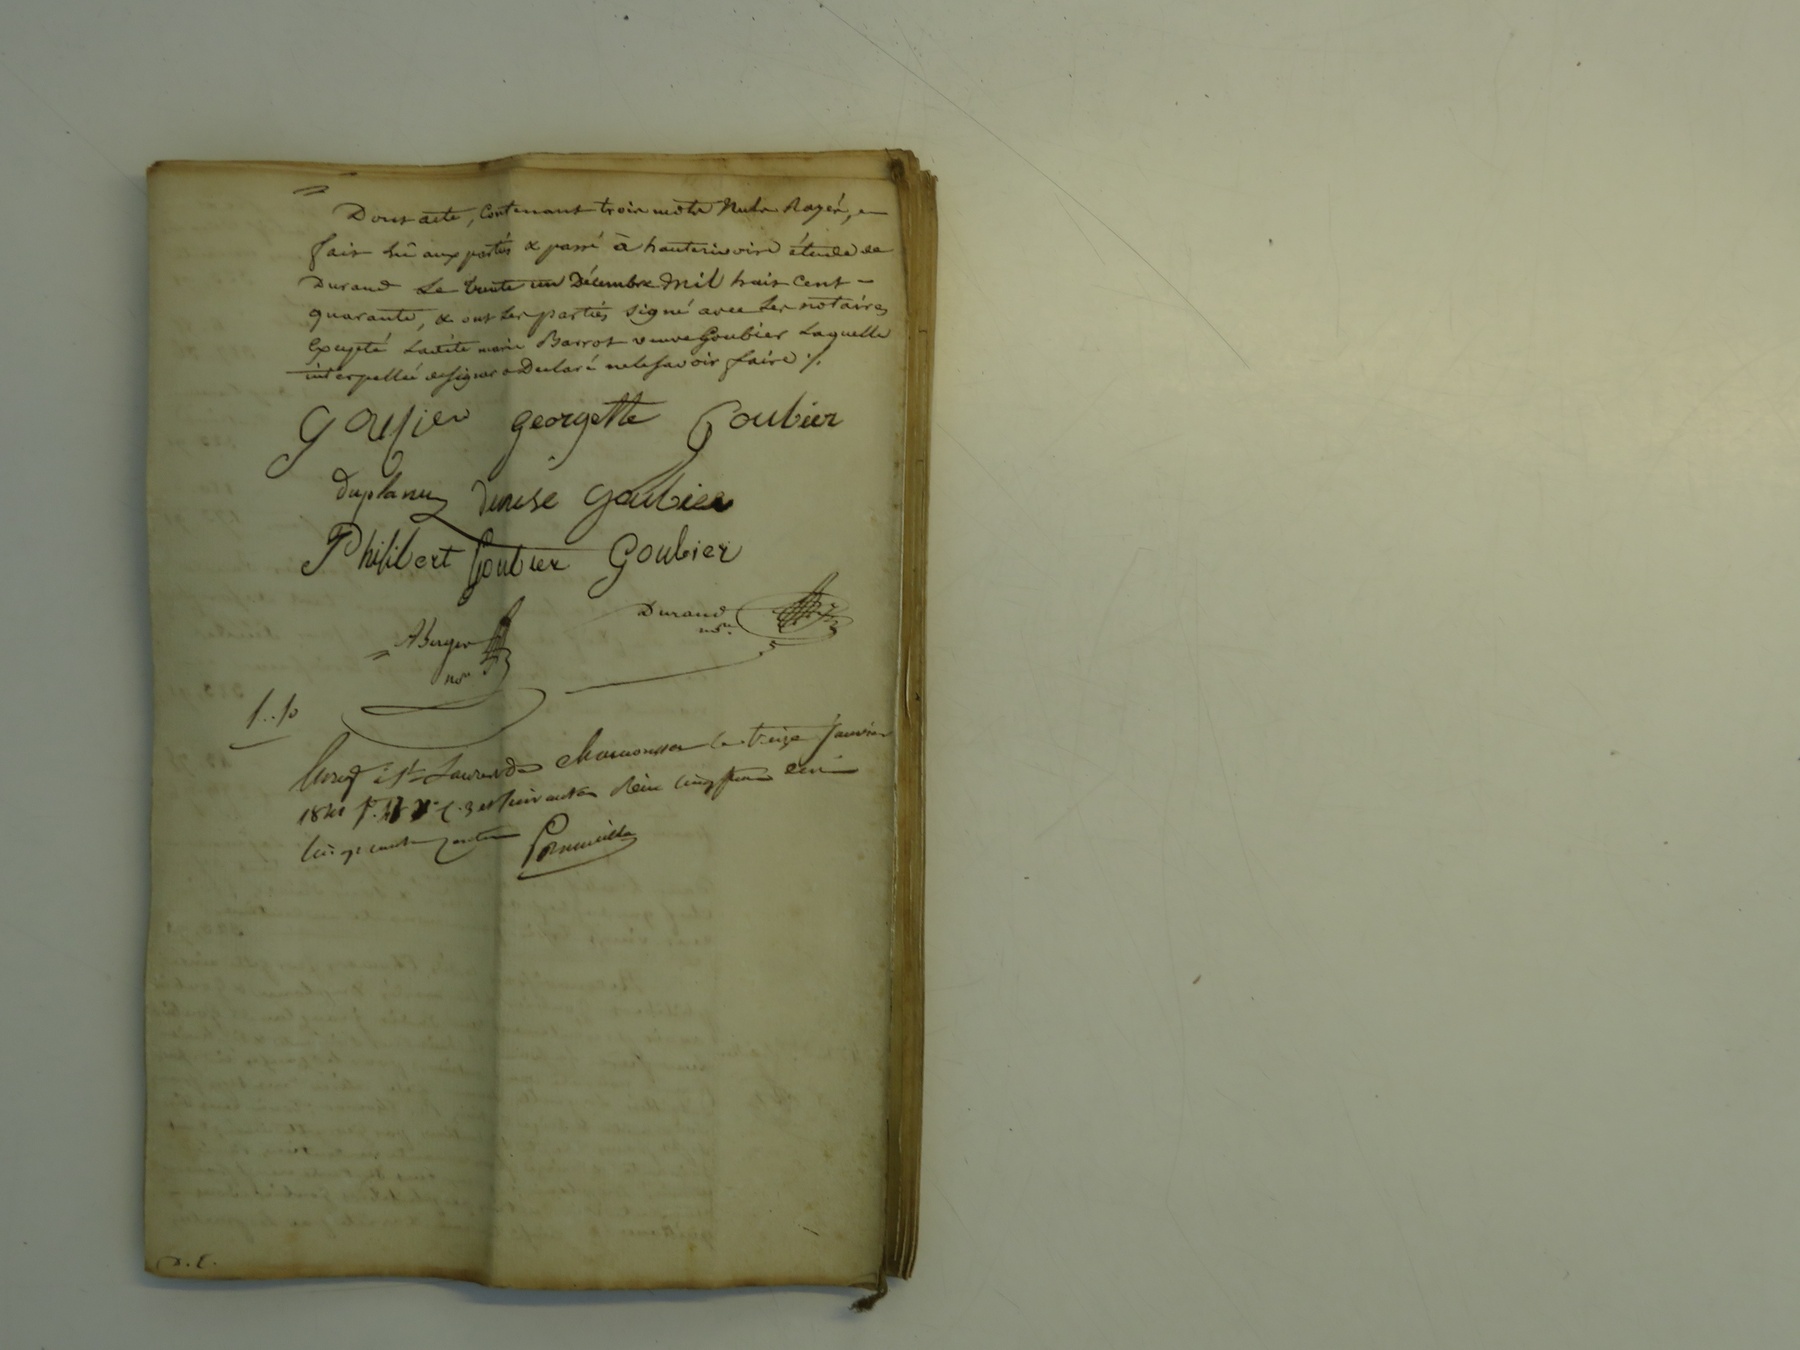 Dont acte, Contenant trois mots Nuls Rayés,
fait lû aux parties & passé à hauterivoire étude de
Durand Le trente un Décembre Mil huit Cent -
quarante, & ont Les parties Signé avec Les notaires
Excepté Ladite marie Barrot veuve Goubier Laquelle
interpellée de signer a Declaré ne le Savoir faire ./.
georgette Goubier
duplany denise Goubier
Philibert Goubier Goubier
Durand
nore.
ABerger
nore
Enreg à St Laurent de Chamousset le treize Janvier
et suivantes Reçu cinq francs
cinquante centimes